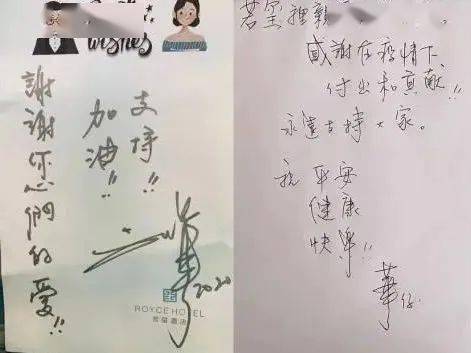 wishes
支持!!
加油!!
謝謝您們的愛!!
華
2020
ROYCE HOTEL
感謝在疫情下
付出和貢獻!!
永遠支持大家。
祝 平安
健康
快樂!!
華仔